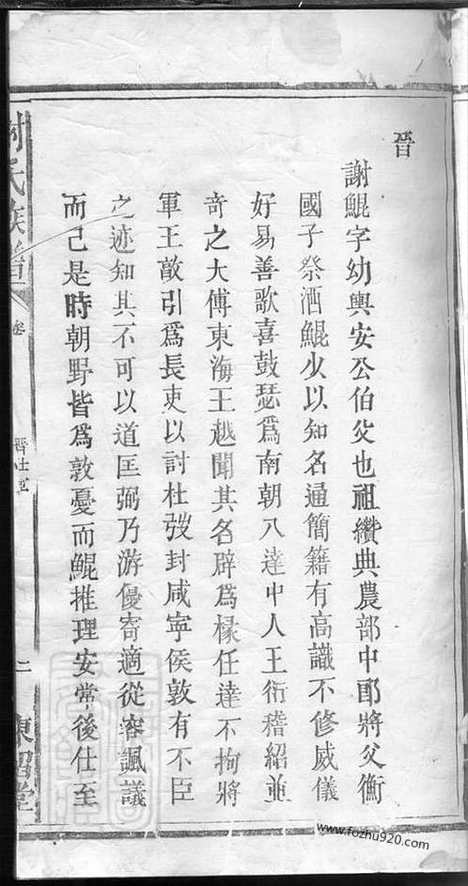 晉
謝鯤字幼輿安公伯父也祖纘典農部中郎將父衡
國子祭酒鯤少以知名通簡籍有高識不修威儀
好易善歌喜鼓瑟爲南朝八達中人王衍嵇紹並
奇之大傅東海王越聞其名辟爲椽任達不拘將
軍王敵引爲長吏以討杜弢封咸寧侯敦有不臣
之迹知其不可以道匡弼乃游優寄適從容諷議
而己是時朝野皆爲敦憂而鯤推理安常後仕至
謝氏族譜
卷
二
東 堂
www.fozhu920.com